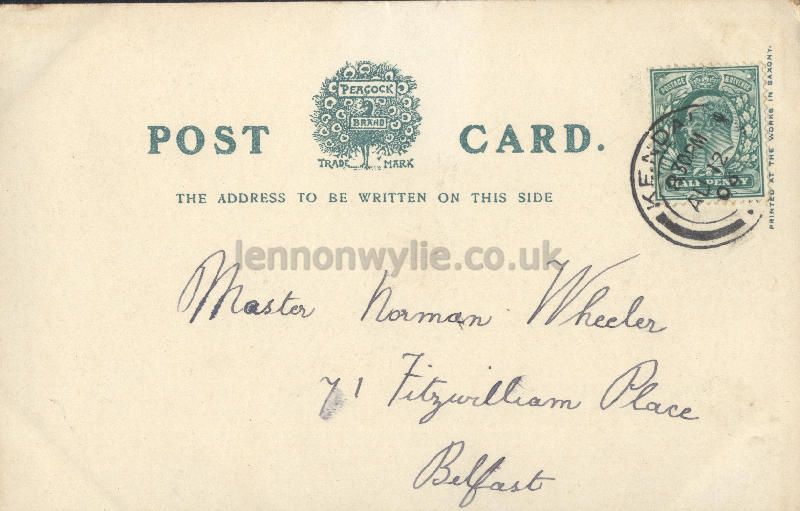 PEACOCK
BRAND
TRADE MARK
POST CARD.
THE ADDRESS TO BE WRITTEN ON THIS SIDE
POSTAGE & REVENUE
HALF PENNY
KENDAL
8.30PM
AU 12
PRINTED AT THE WORKS IN SAXONY.
lennonwylie.co.uk
Master Norman Wheeler
71 Fitzwilliam Place
Belfast